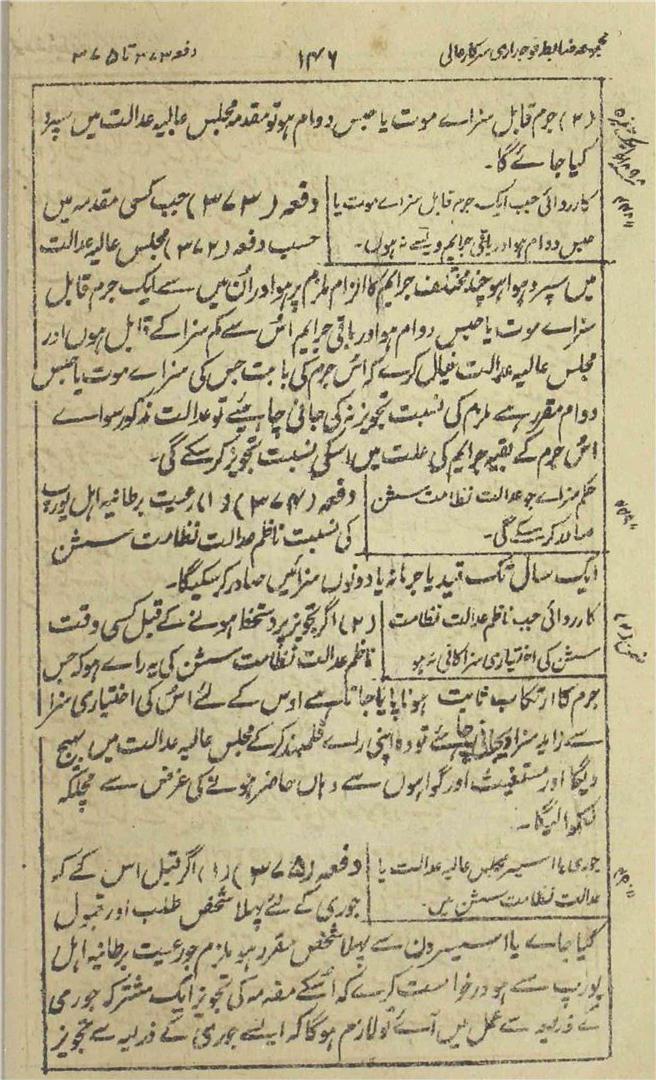 مجموعہ ضابطہ فوجداری سرکار عالی
۱۴۶
دفعہ ۳۷۳ تا ۳۷۵
(۲) جرم قابل سزاے موت یا حبس دوام ہو تو مقدمہ مجلس عالیہ عدالت میں سپرد
کیا جائے گا۔
کارروائی جب ایک جرم قابل سزاے موت یا
حبس دوام ہو اور باقی جرایم ویسے نہ ہوں۔
دفعہ (۳۷۳) جب کسی مقدمہ میں
حسب دفعہ (۳۷۲) مجلس عالیہ عدالت
میں سپرد ہوا ہو چند مختلف جرایم کا الزام ملزم پر ہو اور اُن میں سے ایک جرم قابل
سزاے موت یا حبس دوام ہو اور باقی جرایم اُس سے کم سزا کے قابل ہوں اور
مجلس عالیہ عدالت خیال کرے کہ اُس جرم کی بابت جس کی سزاے موت یا حبس
دوام مقرر ہے ملزم کی نسبت تجویز نہ کی جانی چاہیئے تو عدالت مذکور سواے
اُس جرم کے بقیہ جرایم کی علت میں اسکی نسبت تجویز کر سکے گی۔
حکم سزاے جو عدالت نظامت سشن
صادر کر سکے گی۔
دفعہ (۳۷۴) (۱) رعیت برطانیہ اہل یورپ
کی نسبت ناظم عدالت نظامت سشن
ایک سال تک قید یا جرمانہ یا دونوں سزائیں صادر کر سکیگا۔
کارروائی جب ناظم عدالت نظامت
سشن کی اختیاری سزا کافی نہ ہو
(۲) اگر تجویز پر دستخط ہونے کے قبل کسی وقت
ناظم عدالت نظامت سشن کی یہ راے ہو کہ جس
جرم کا ارتکاب ثابت ہونا پایا جاتا ہے اوس کے لئے اُس کی اختیاری سزا
سے زاید سزا دیجانی چاہئے تو وہ اپنی راے قلمبند کرکے مجلس عالیہ عدالت میں بھیج
دیگا اور مستغیث اور گواہوں سے وہاں حاضر ہونے کی غرض سے مچلکہ
لکھوا لیگا۔
جوری یا اسیسر مجلس عالیہ عدالت یا
عدالت نظامت سشن میں۔
دفعہ (۳۷۵) (۱) اگر قبل اس کے کہ
جوری کے لئے پہلا شخص طلب اور قبول
کیا جاے یا اسیسروں سے پہلا شخص مقرر ہو ملزم جو رعیت برطانیہ اہل
یورپ سے ہو درخواست کرے کہ اُسکے مقدمہ کی تجویز ایک مشترکہ جوری
کے ذریعہ سے عمل میں آئے تو لازم ہوگا کہ ایسے جوری کے ذریعہ سے تجویز